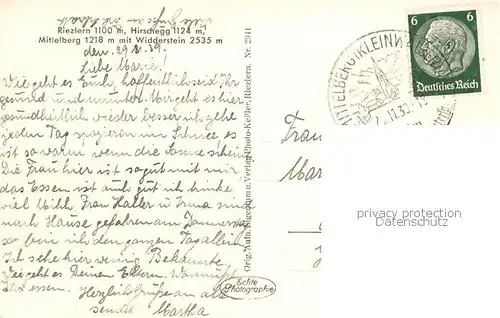 Viele Grüße an
Riezlern 1100 m, Hirschegg 1124 m,
Mittelberg 1218 m mit Widderstein 2535 m
den 29. 39.
Liebe Marie!
Wie geht es Euch, hoffentlich seid Ihr
gesund und munter. Mir geht es hier
gesundheitlich wieder besser ich gehe
jeden Tag spazieren im Schnee, es
ist so warm wenn die Sonne scheint
Die Frau hier ist so gut mit mir
das Essen ist auch gut ich trinke
viel Milch. Frau Haller u Irma sind
nach Hause gefahren am Donnerstag
so bin ich den ganzen Tag allein
Ich sehe hier wenig Bekannte.
Wie geht es Deinen Eltern.
Ihr essen. Herzliche Grüße an alle
sendet Martha
Orig.-Aufn. Eigentum u. Verlag Photo-Keßler, Riezlern. Nr. 2941
Echte
Photographie
6 6
Deutsches Reich
MITTELBERG (KLEINW
Frau
Mar
privacy protection
Datenschutz